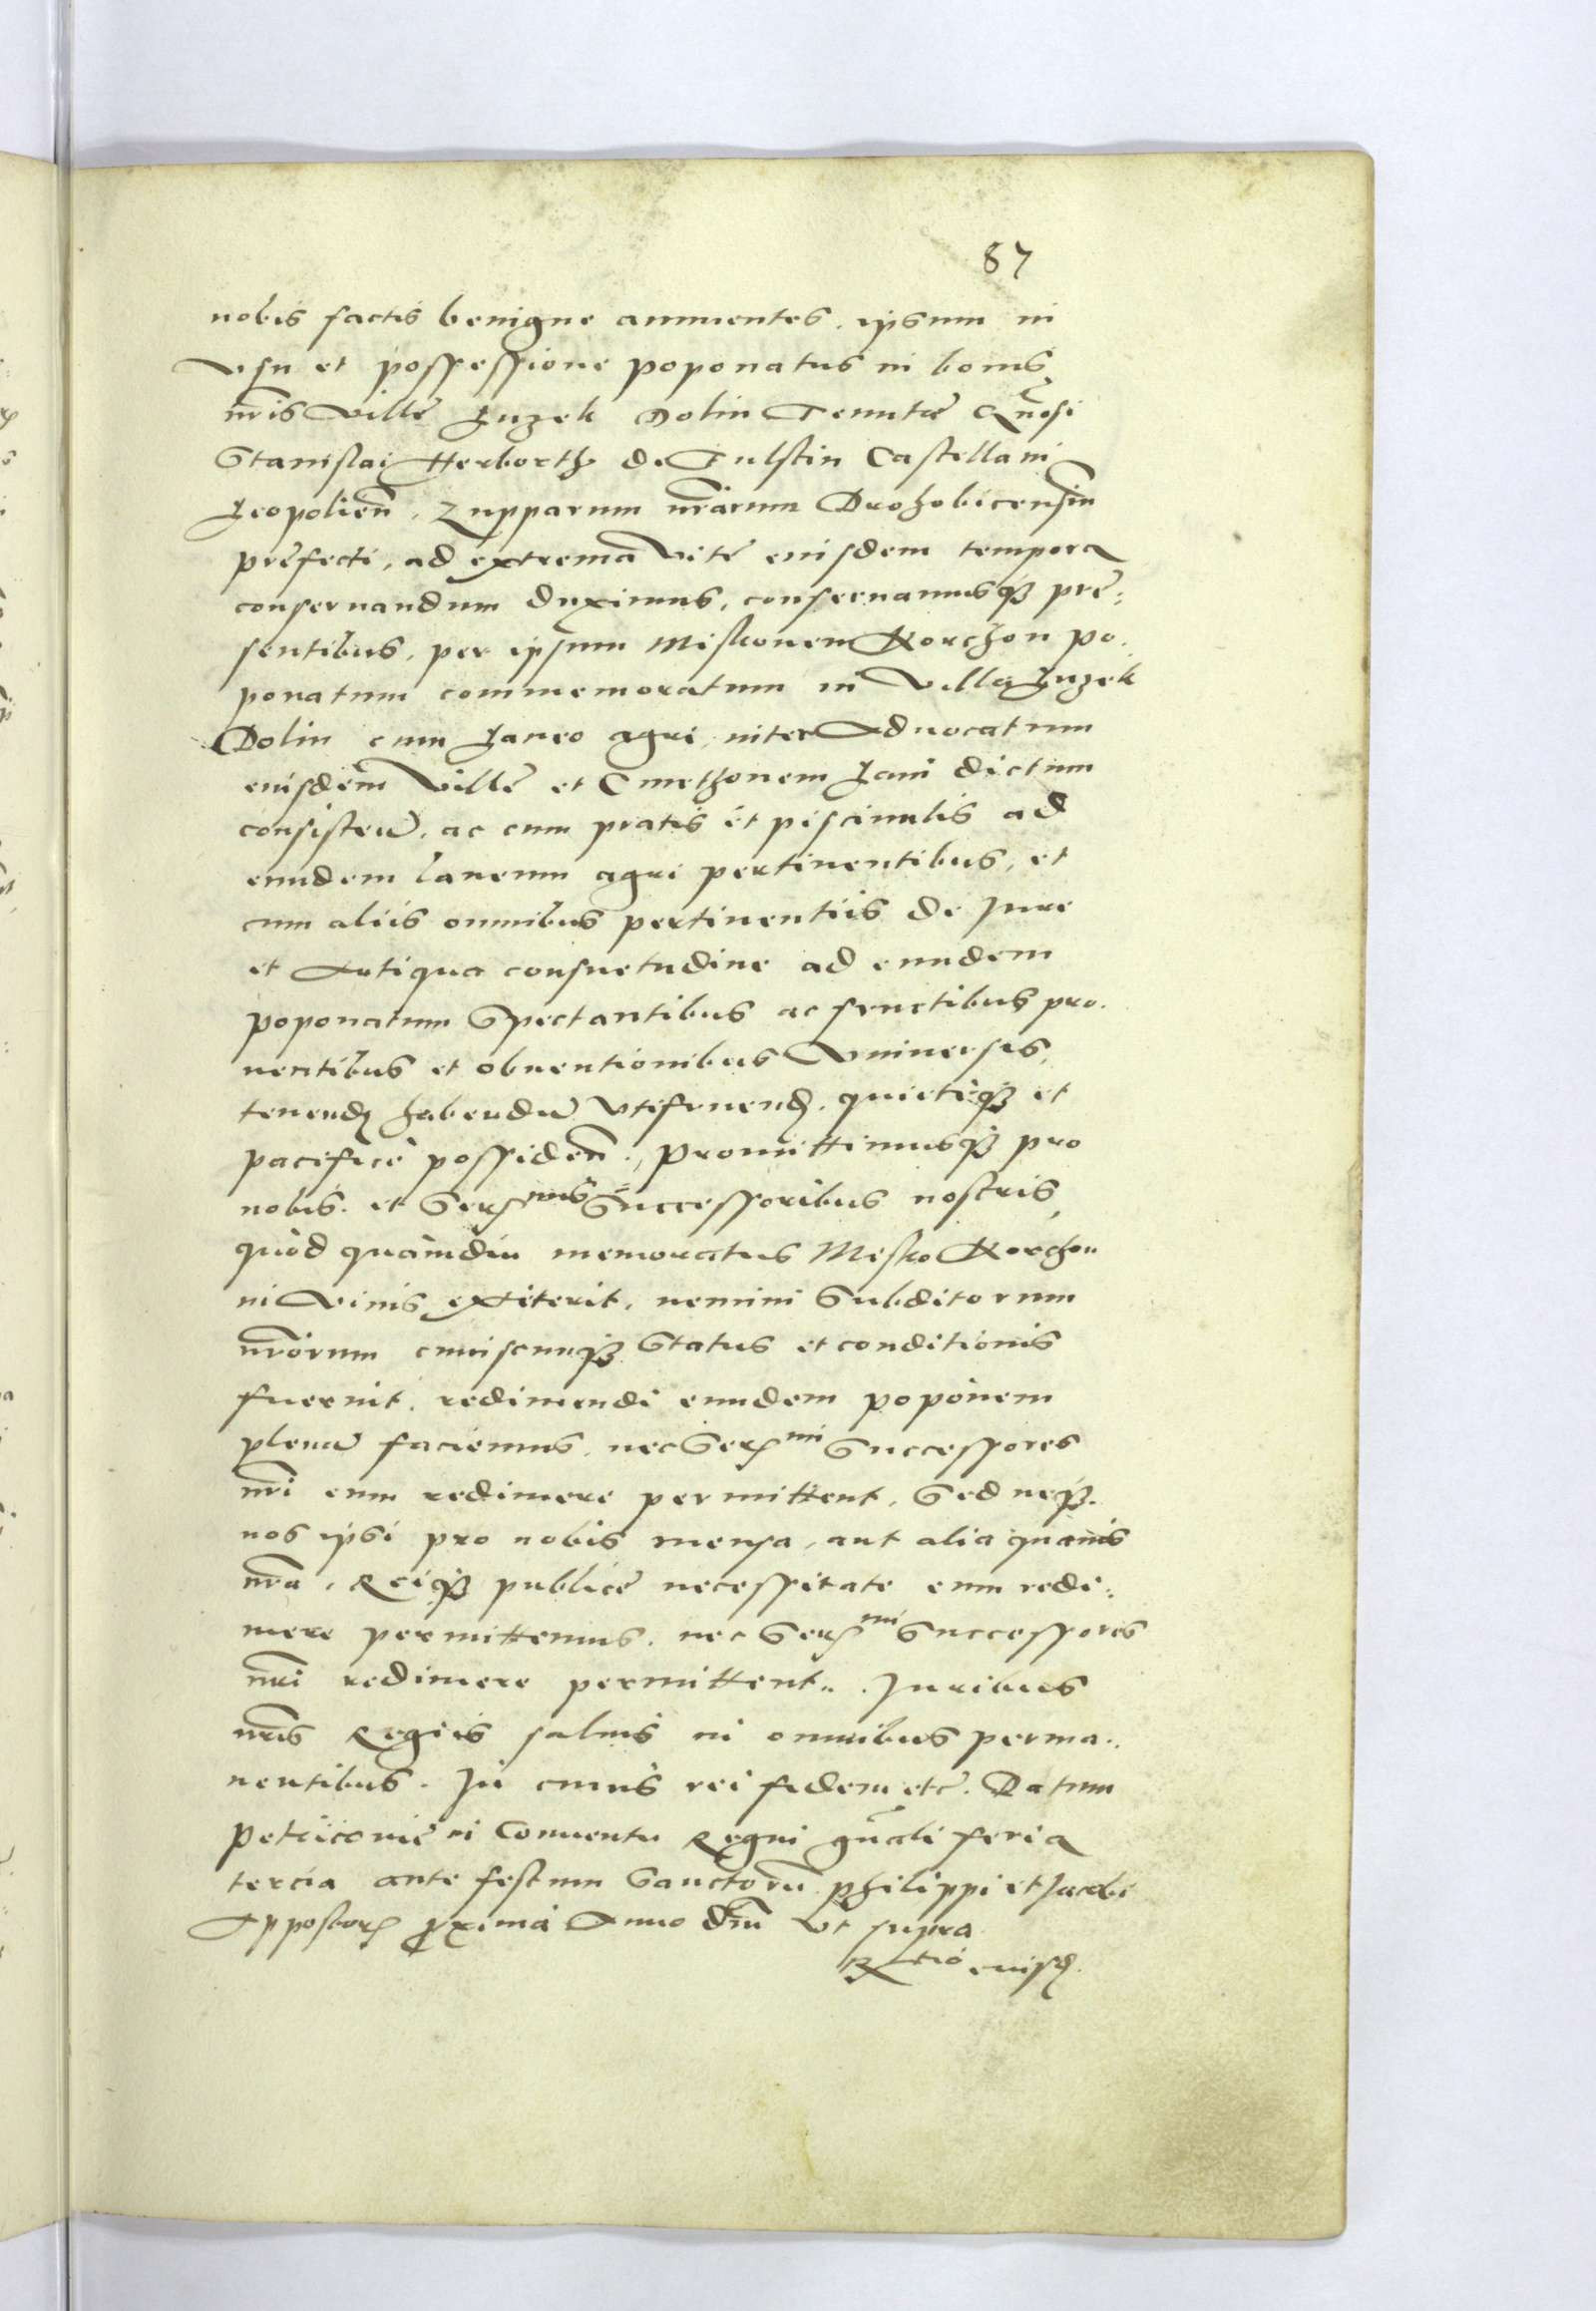 87
nobis factis benigne annuentes, ipsum in
vsu et possessione poponatus in bonis
nr̃is Villę Luzek Dolin Tenutę Gñosi
Stanislai Herborth de Fulstin Castellani
Leopolień, Zupparum nr̃arum Drohobicensiũ
pręfecti, ad extrema Vitę eiusdem tempora
conseruandum duximus, conseruamusq3 prę:
sentibus, per ipsum Miskonem Korchon po.
ponatum commemoratum in Villa Luzek
Dolin cum Laneo agri, inter Aduocatum
eiusdem Villę et Cmethonem Lani dictum
consisteñ, ac cum pratis et piscinulis ad
eundem laneum agri pertinentibus, et
cum aliis omnibus pertinentiis de Jure
et Antiqua consuetudine ad eundem
poponatum Spectantibus ac fructibus pro.
uentibus et obuentionibus Vniuersis,
tenend habendũ Vtifruend, quietèq3 et
pacificè possideñ., promittimusq3 pro
nobis et Ser^mis Successoribus nostris,
quòd quàmdiu memoratus Misko Korchon
in Viuis extiterit, nemini Subditorum
nr̃orum cuiuscunq3 Status et conditionis
fuerint, redimendi eundem poponem
plenũ faciemus, nec Ser^mi Successores
nr̃i eum redimere permittent, Sed neq3
nos ipsi pro nobis mensa, aut alia quauis
nr̃a, Reiq3 publicę necessitate eum redi:
mere permittemus, nec Ser^mi Successores
nr̃i redimere permittent.. Juribus
nr̃is Regiis saluis in omnibus perma..
nentibus. In cuius rei fidem etc̃. Datum
Petricouię in Conuentu Regni gñali feria
tercia ante festum Sanctorũ Philippi et Jacobi
Appostor proxima Anno Dñi Vt supra
R^tio eiusd.